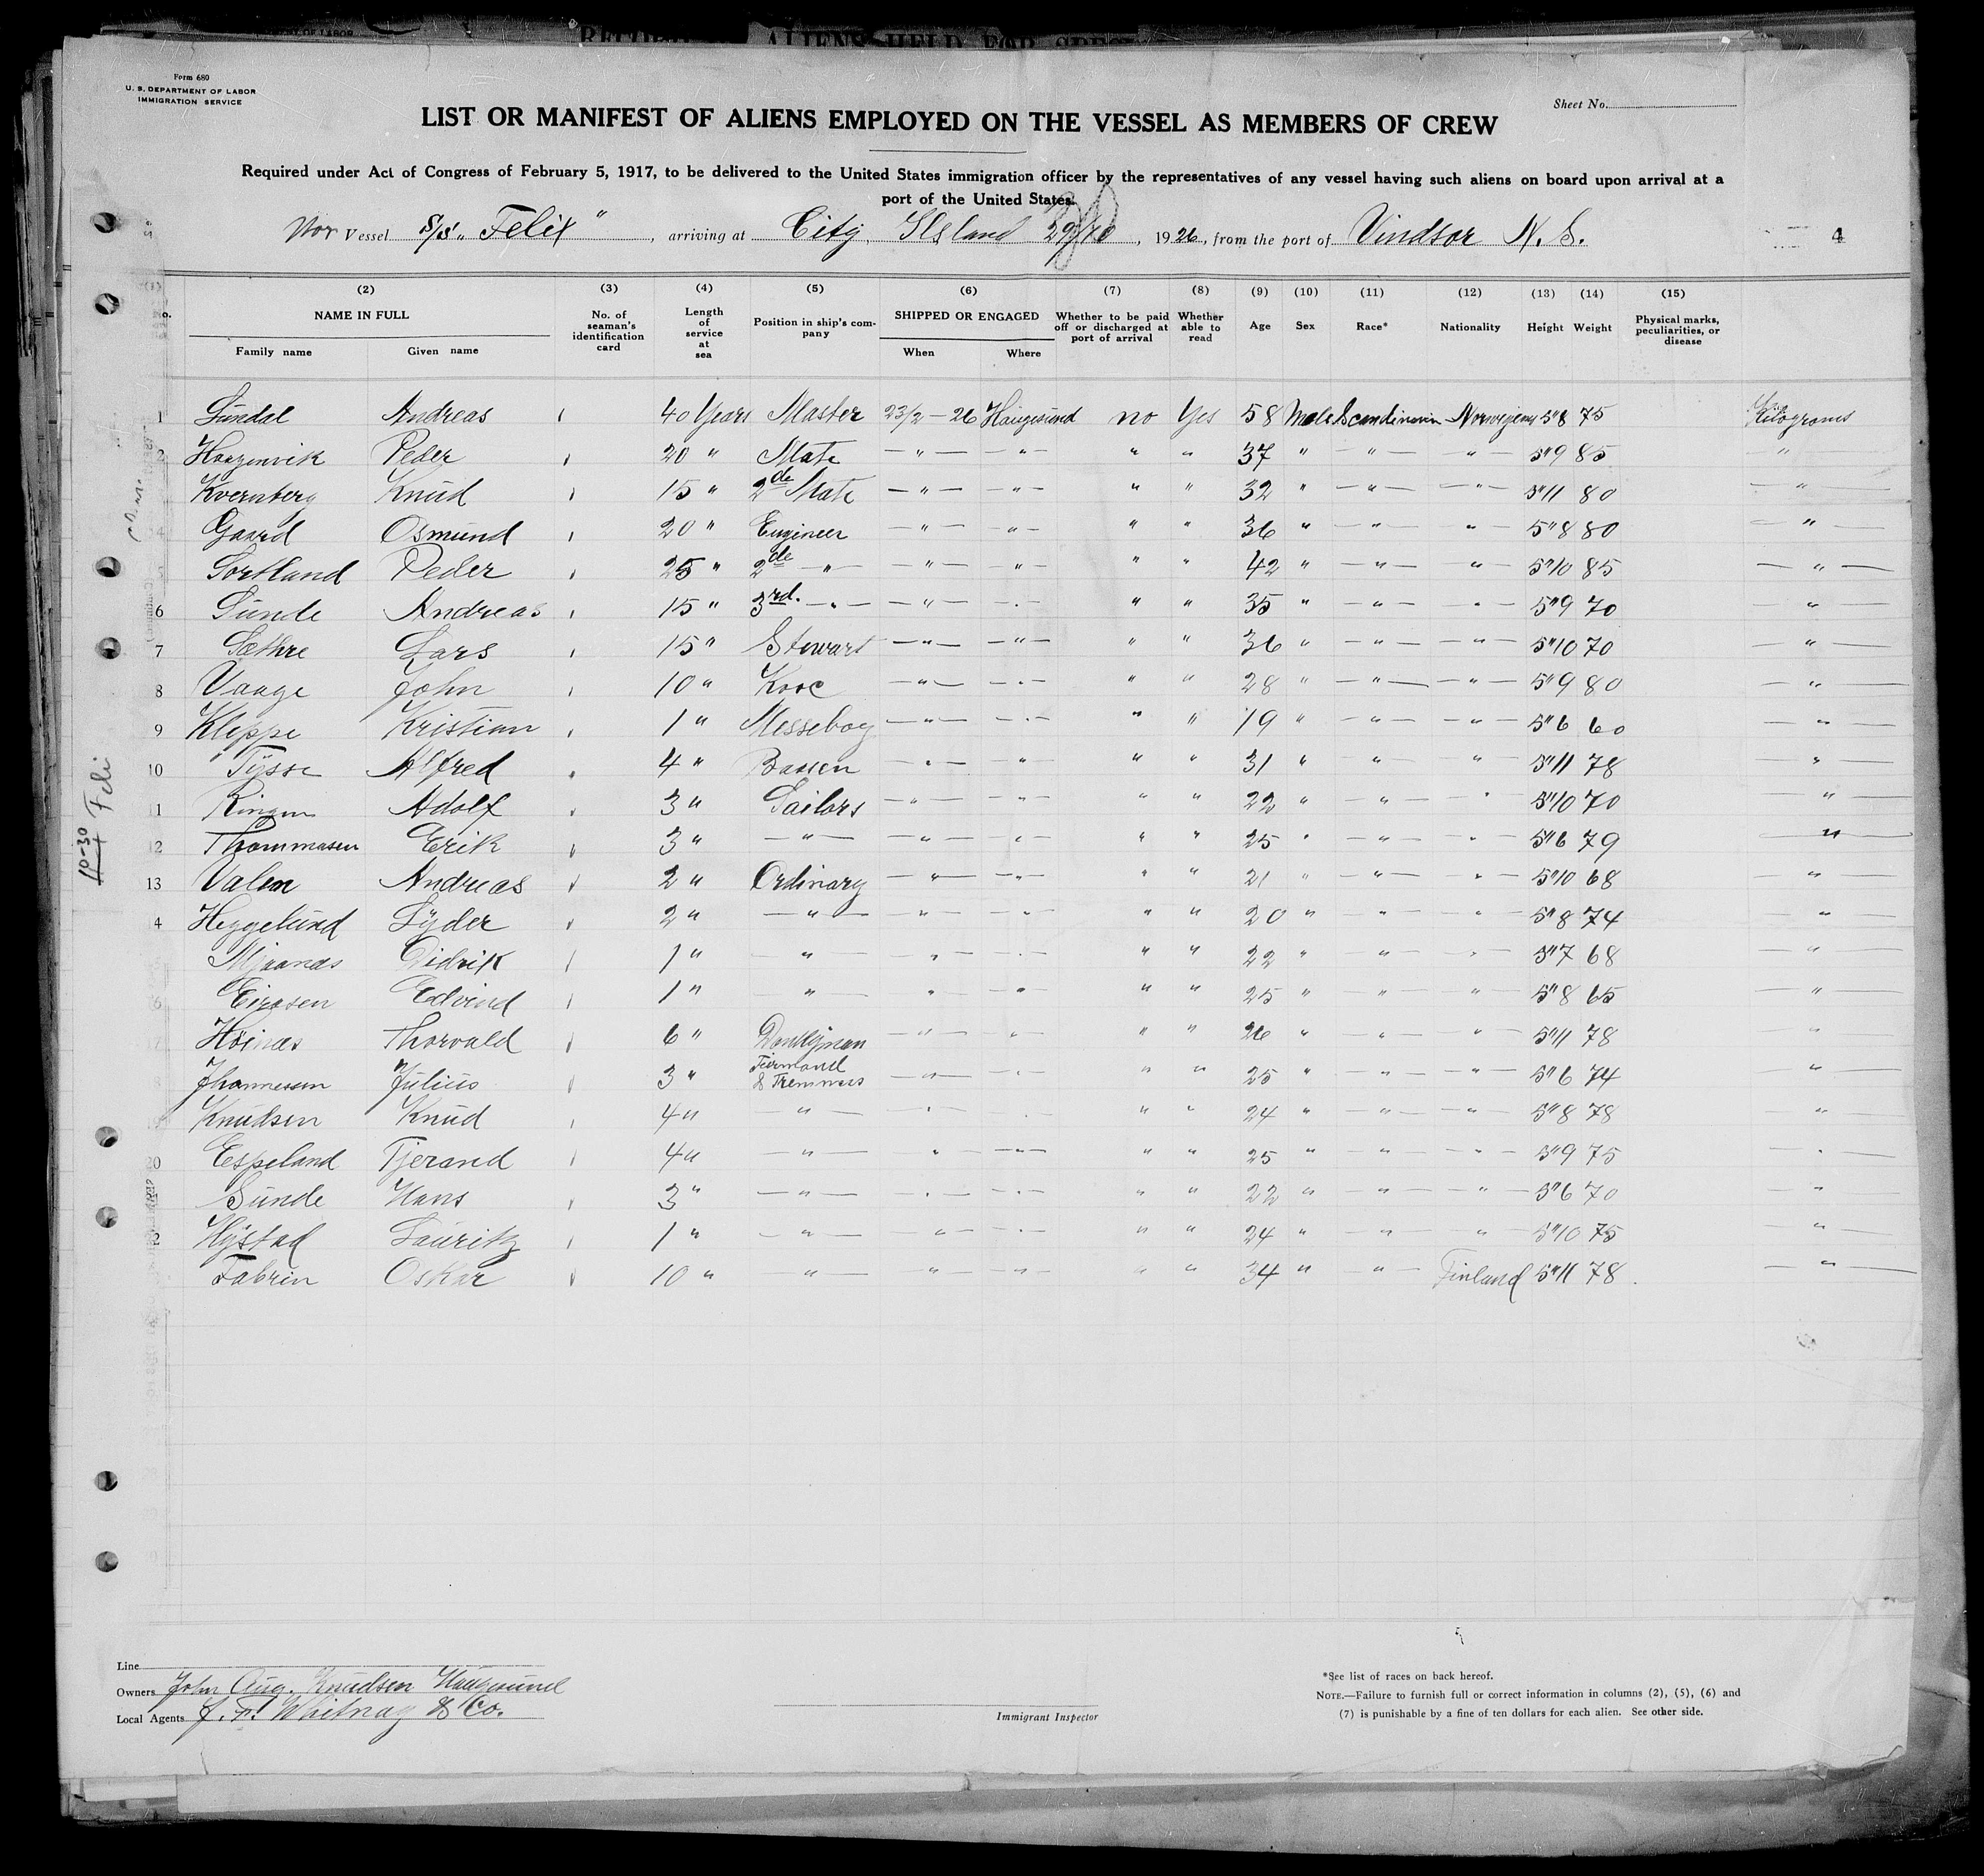 Form 680
U. S. DEPARTMENT OF LABOR
IMMIGRATION SERVICE
Sheet No.
LIST OR MANIFEST OF ALIENS EMPLOYED ON THE VESSEL AS MEMBERS OF CREW
Required under Act of Congress of February 5, 1917, to be delivered to the United States immigration officer by the representatives of any vessel having such aliens on board upon arrival at a
port of the United States.
Nor Vessel S/S „Felix", arriving at City Island 29/10, 1926, from the port of Vindsor N. S.
4
(2) (3) (4) (5) (6) (7) (8) (9) (10) (11) (12) (13) (14) (15)
NAME IN FULL
Family name Given name
No. of seaman's identification card
Length of service at sea
Position in ship's company
SHIPPED OR ENGAGED
When Where
Whether to be paid off or discharged at port of arrival
Whether able to read
Age Sex Race* Nationality Height Weight
Physical marks, peculiarities, or disease
1 Sundal Andreas 40 Years Master 23/2-26 Haugesund no Yes 58 Male Scandinavin Norwegians 5"8 75 Kilograms
2 Peder 20 " Mate —"— —"— " " 37 " —"— —"— 5"9 85 "
Kvernberg Knud 15 " 2de Mate —"— —"— " " 32 " —"— —"— 5"11 80 —"—
4 Gaard Osmund 20 " Engineer —"— —"— " " 36 " —"— "— 5"8 80 —"—
5 Sortland Peder 25 " 2de —"— —"— —"— " " 42 " —"— —"— 5"10 85 —"—
6 Sunde Andreas 15 " 3rd. —"— —"— —"— " " 35 " —"— "— 5"9 70 —"—
7 Sæthre Lars 15 " Stewart —"— —"— " " 36 " —"— —"— 5"10 70 —"—
8 Vaage John 10 " Kooc —"— —"— " " 28 " —"— —"— 5"9 80 —"—
9 Kleppe Kristian 1 " Messeboy —"— —"— " " 19 " —"— —"— 5"6 60 —"—
10 Tysse Alfred 4 " —"— " " " 31 " —"— —"— 5"11 78 "
11 Adolf 3 " Sailors —"— —"— " " 22 " —"— " 5"10 70 —"—
12 Thommasen Erik 3 " —"— —"— " " " 25 " —"— "— 5"6 79 —"—
13 Valen Andreas 2 " Ordinary —"— —"— " " 21 " —"— "— 5"10 68 —"—
4 Heggelund Lyder 2 " —"— —"— —"— " " 20 " " "— 5"8 74 —"—
Mjaanes Didrik 1 " " " —"— " " 22 " —"— "— 5"7 68 —"—
6 Edvind 1 " —"— " —"— " " 25 " —"— —"— 5"8 65 —"—
Høinæs Thorvald 6 " Donkyman —"— " " " 26 " —"— —"— 5"11 78 "
Julius 3 " —"— —"— " " 25 " —"— —"— 5"6 74 —"—
Knudsen Knud 4 " —"— " —"— " " 24 " —"— —"— 5"8 78 "
20 Espeland Tjerand 4 " —"— " —"— " " 25 " —"— —"— 5"9 75 —"—
Sunde Hans 3 " —"— —"— —"— " " 22 " —"— —"— 5"6 70 —"—
Hystad Lauritz 1 " —"— " —"— " " 24 " —"— " 5"10 75 —"—
Fabrin Oskar 10 " —"— —"— —"— " " 34 " —"— Finland 5"11 78 —"—
10-30 Feli
Line
Owners John Aug. Knudsen Haugesund
Local Agents J. F. Whitnay & Co.
Immigrant Inspector
*See list of races on back hereof.
NOTE.—Failure to furnish full or correct information in columns (2), (5), (6) and
(7) is punishable by a fine of ten dollars for each alien. See other side.